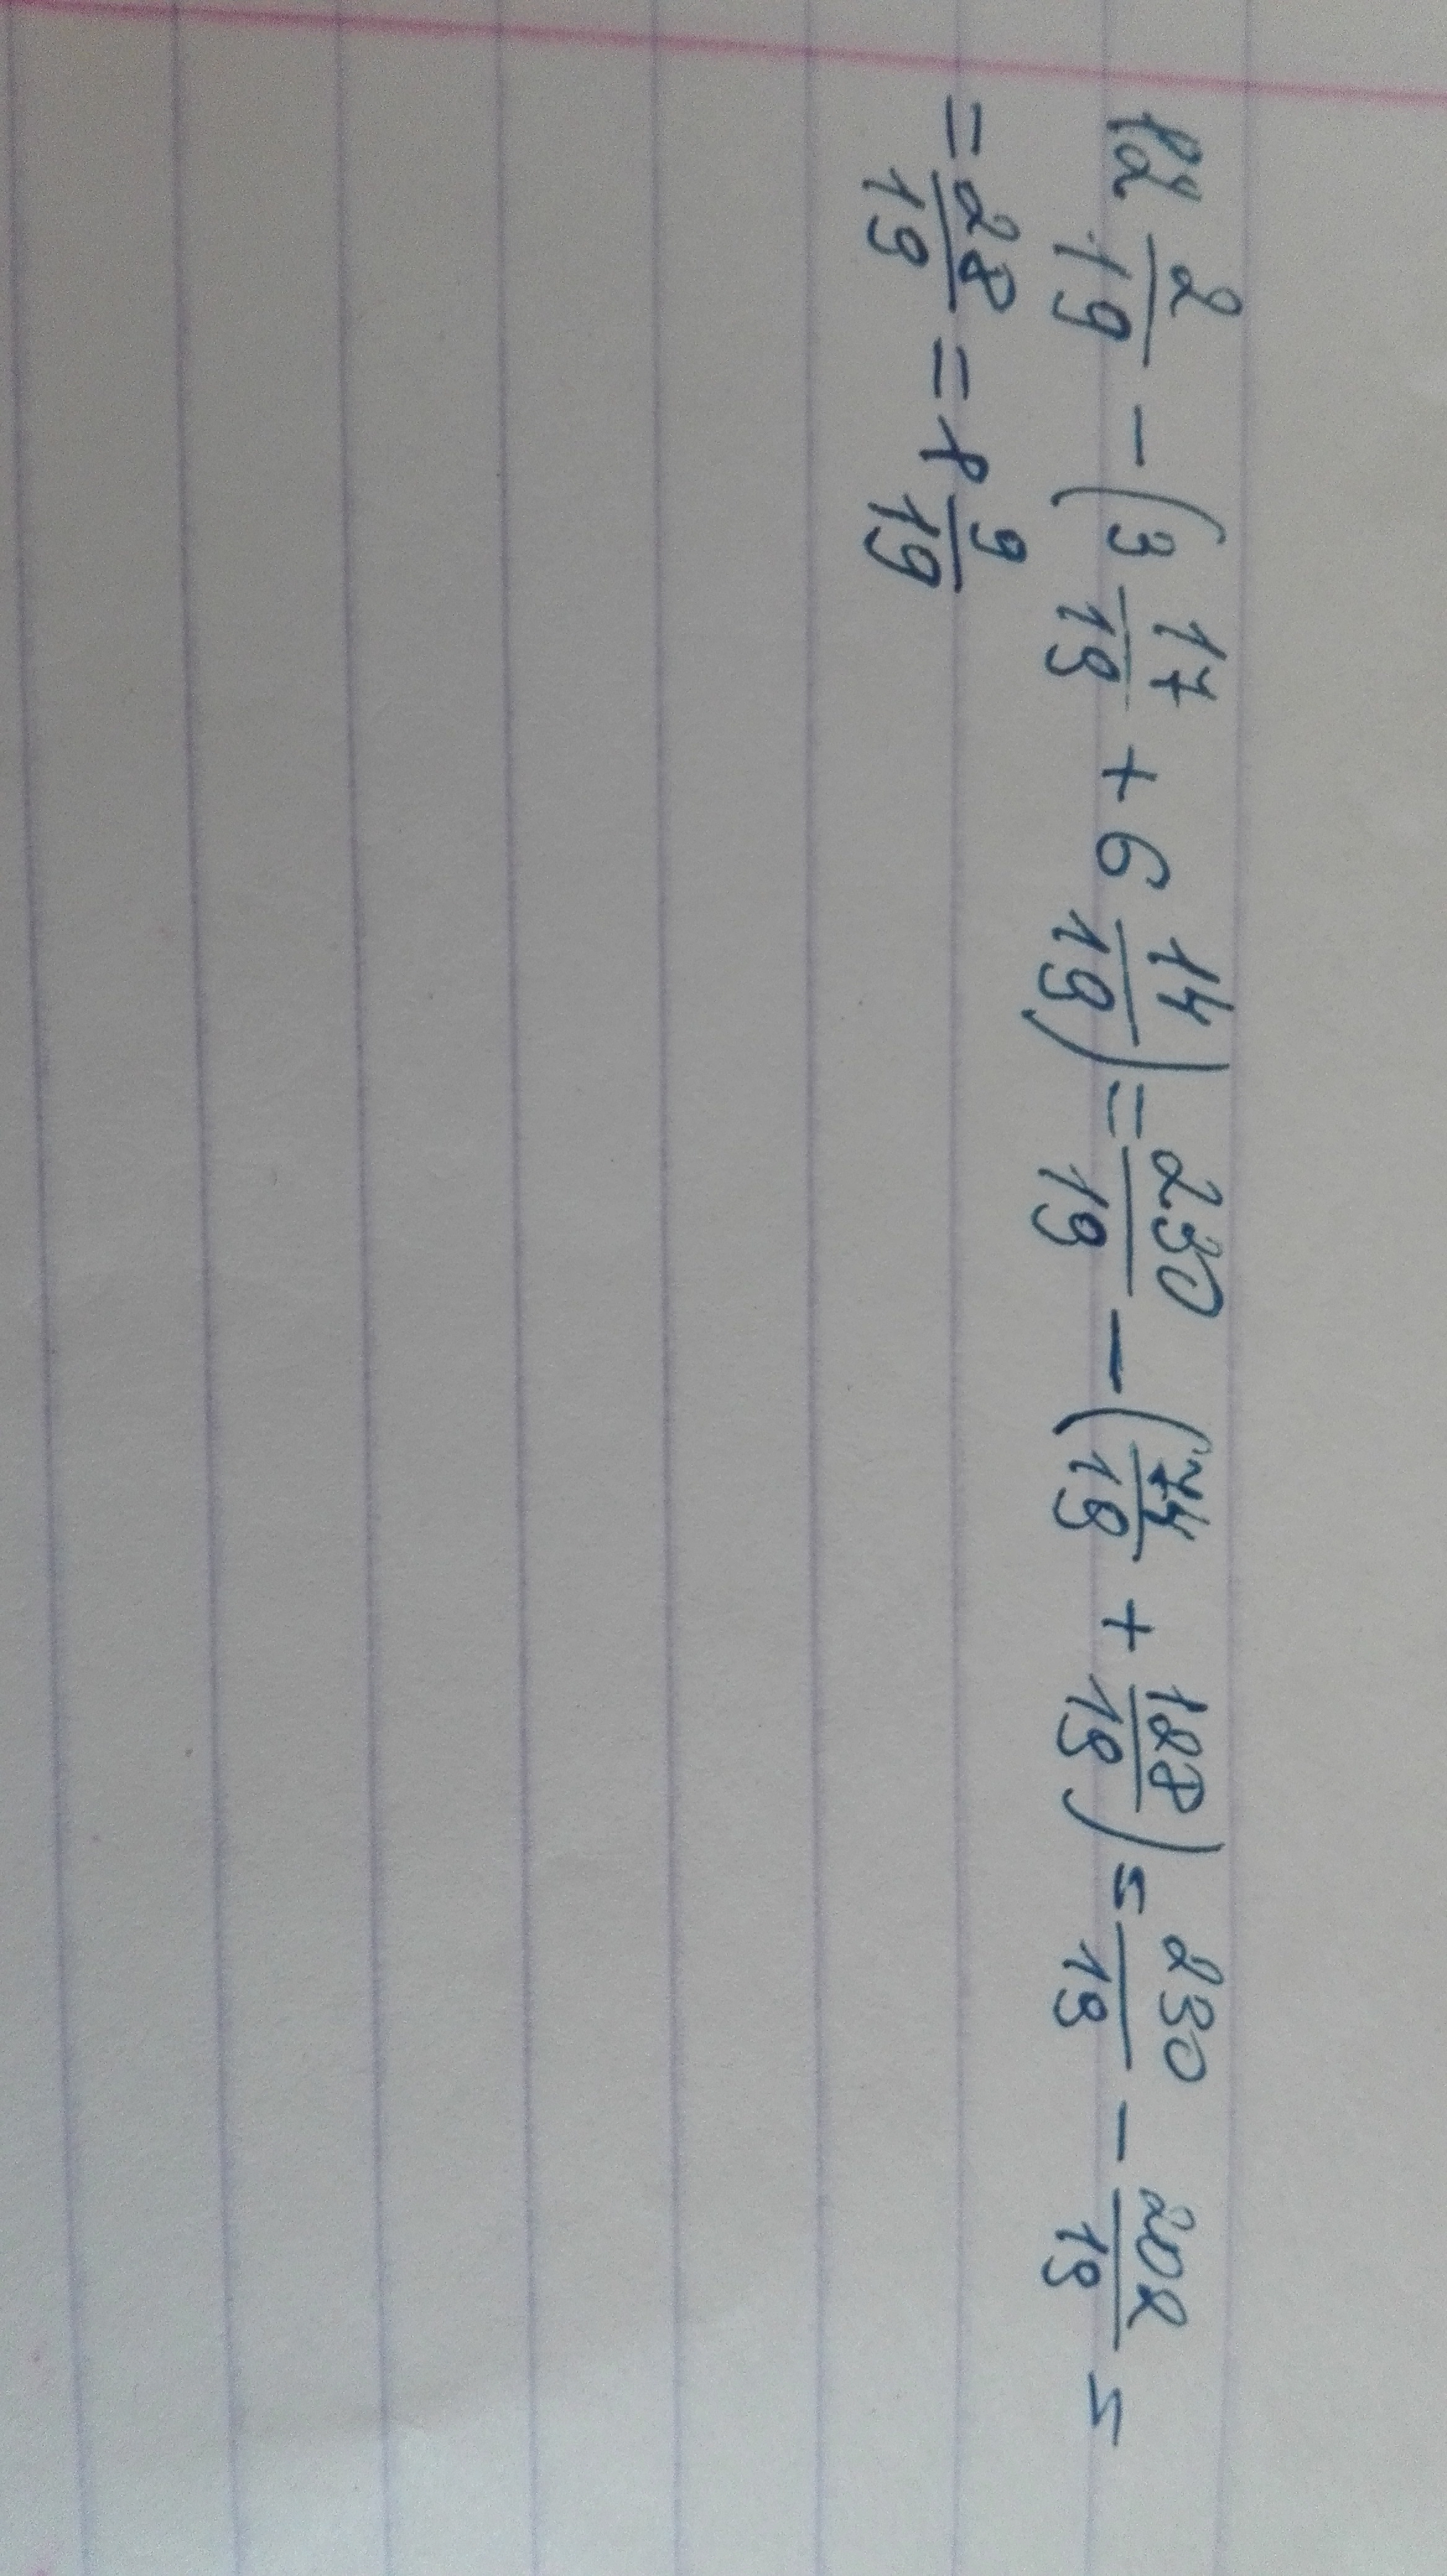 12 2/19 - (3 17/19 + 6 14/19) = 230/19 - (74/19 + 128/19) = 230/19 - 202/19 =
= 28/19 = 1 9/19